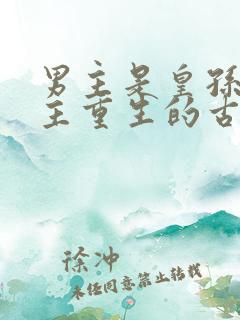 男主是皇孙
主重生的古
徐冲
未经同意禁止转载